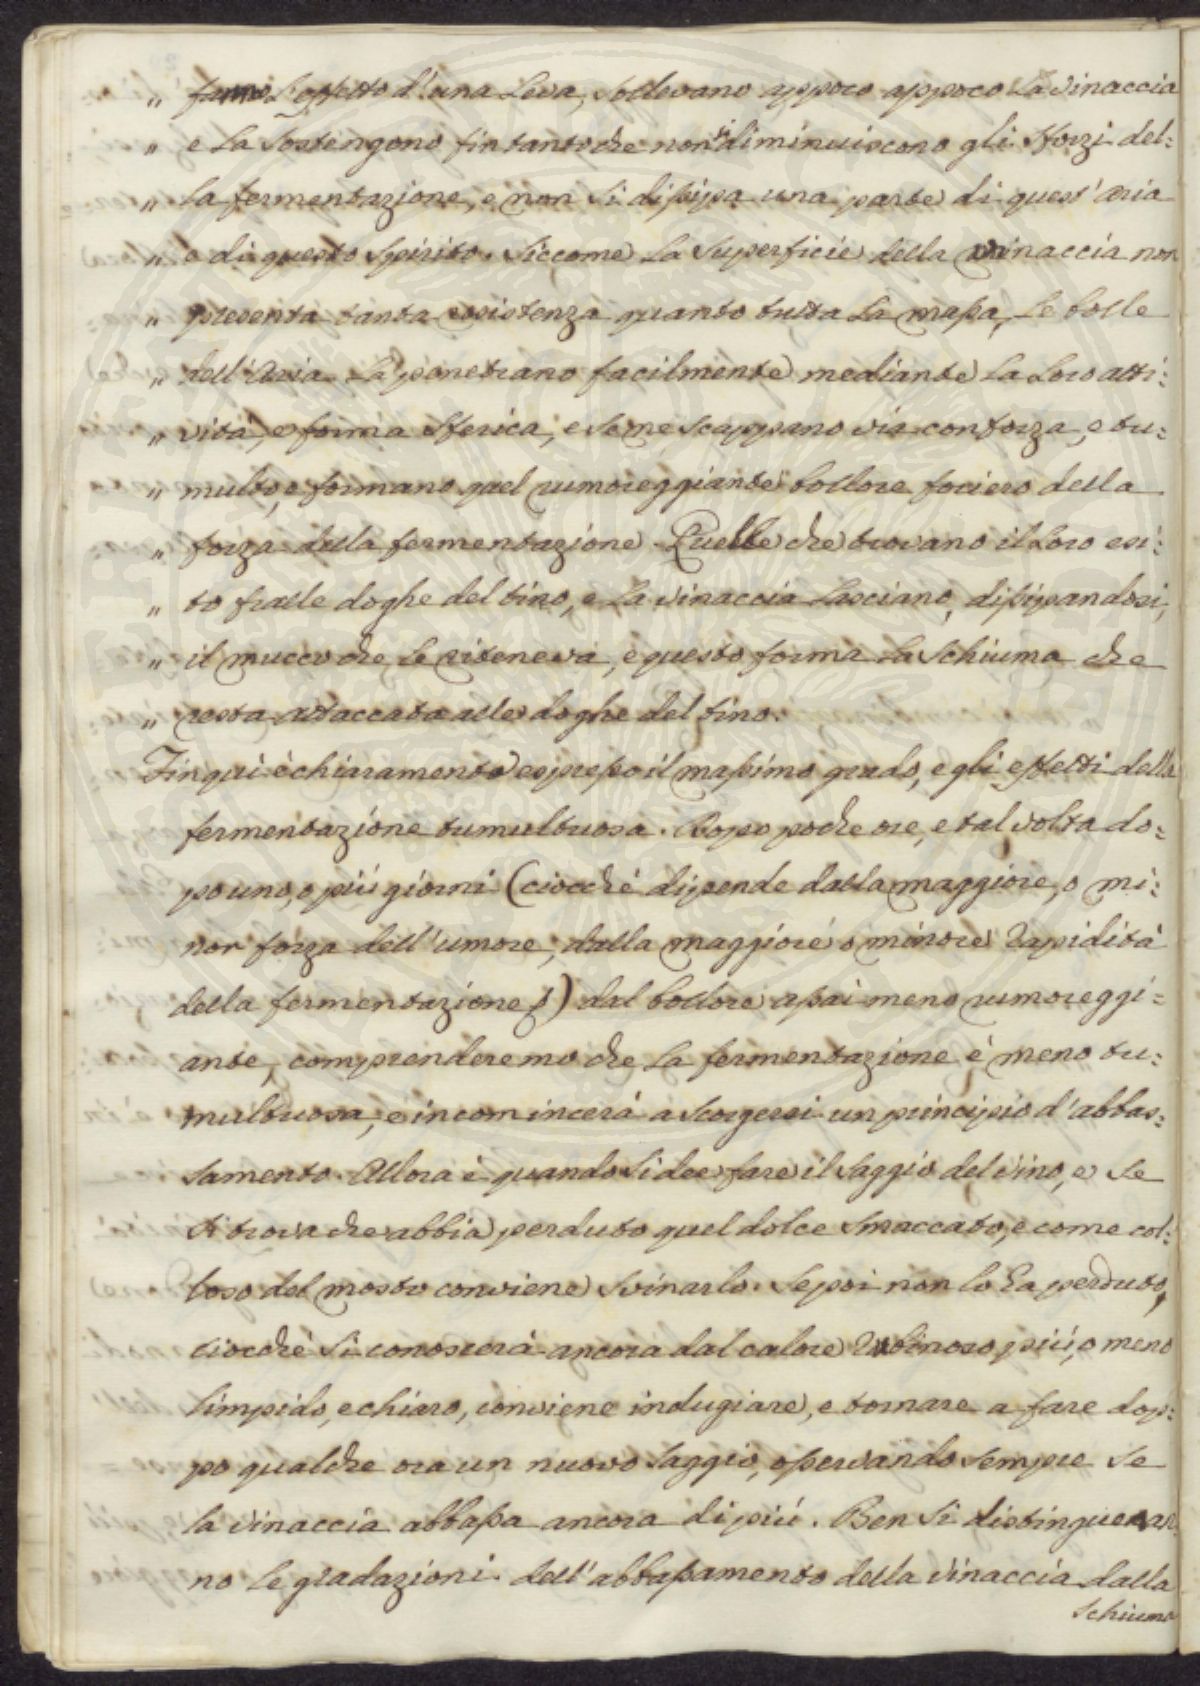 „ fanno l'effetto d'una Leva, sollevano appoco appoco La Vinaccia
„ e La Sostengono fintantoche non si diminuiscono gli Sforzi del:
„ la fermentazione, e non Si dissipa una parte di quest'aria
„ e di questo Spirito. Siccome La Superficie della vinaccia non
„ presenta tanta resistenza quanto tutta La massa, Le bolle
„ dell'Aria La penetrano facilmente mediante La Loro atti:
„ vità, e forma Sferica, e Se ne Scappano via con forza, e tu:
„ multo, e formano quel rumoreggiante bollore foriero della
„ forza della fermentazione. Quelle che trovano il Loro esi:
„ to fralle doghe del tino, e La Vinaccia Lasciano, dissipandosi,
„ il mucco che Le riteneva, e questo forma La Schiuma che
„ resta attaccata alle doghe del tino.
Finquì è chiaramente espresso il massimo grado, e gli effetti della
fermentazione tumultuosa. Dopo poche ore, e tal volta do:
po uno, o più giorni (ciocchè dipende dalla maggiore, o mi:
nor forza dell'umore, dalla maggiore o minore rapidità
della fermentazione) dal bollore assai meno rumoreggi=
ante, comprenderemo che La fermentazione è meno tu:
multuosa, e incomincerà a Scorgersi un principio d'abbas:
samento. Allora è quando Si dee fare il Saggio del vino, e Se
Si trova che abbia perduto quel dolce Smaccato, e come col:
loso del mosto conviene Svinarlo. Se poi non lo ha perduto,
ciocchè Si conoscerà ancora dal calore Rubinoso più, o meno
limpido, e chiaro, conviene indugiare, e tornare a fare dop:
po qualche ora un nuovo Saggio, osservando Sempre Se
la Vinaccia abbassa ancora di più. Ben Si distingueran
no Le gradazioni dell'abbassamento della Vinaccia dalla
Schiuma